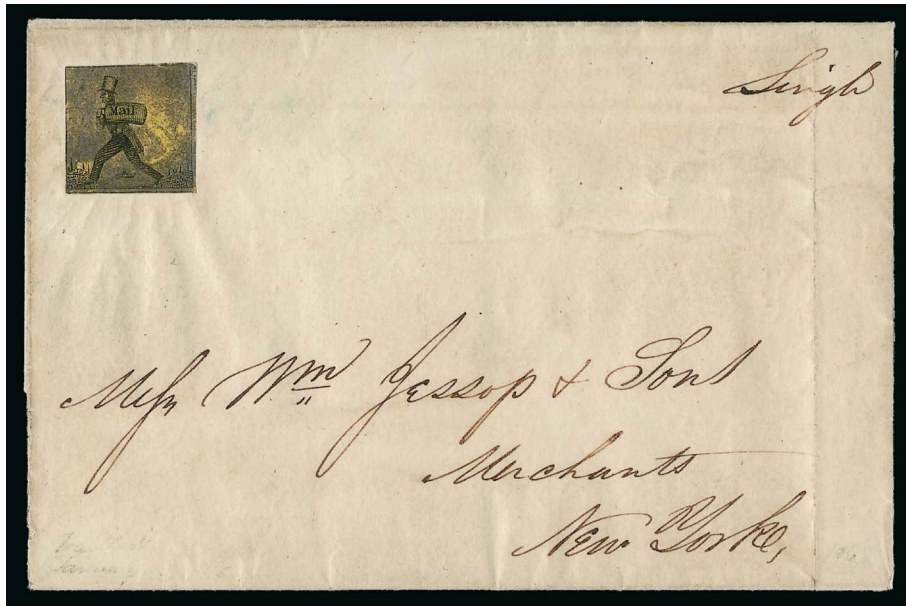 Mail
Singh
Messrs Wm Jessop & Sons
Merchants
New York,